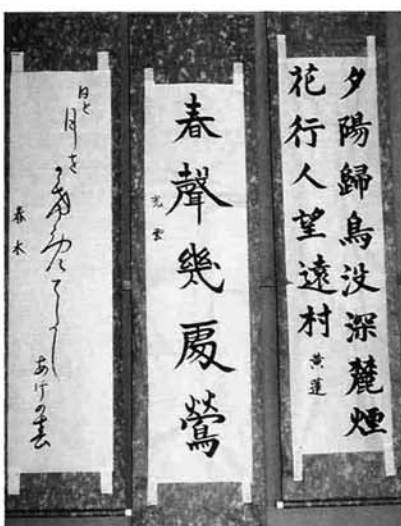 夕陽歸鳥没深麓煙
花行人望遠村
黄蓮
春聲幾處鶯
光雲
日と
月
あけの春
春水